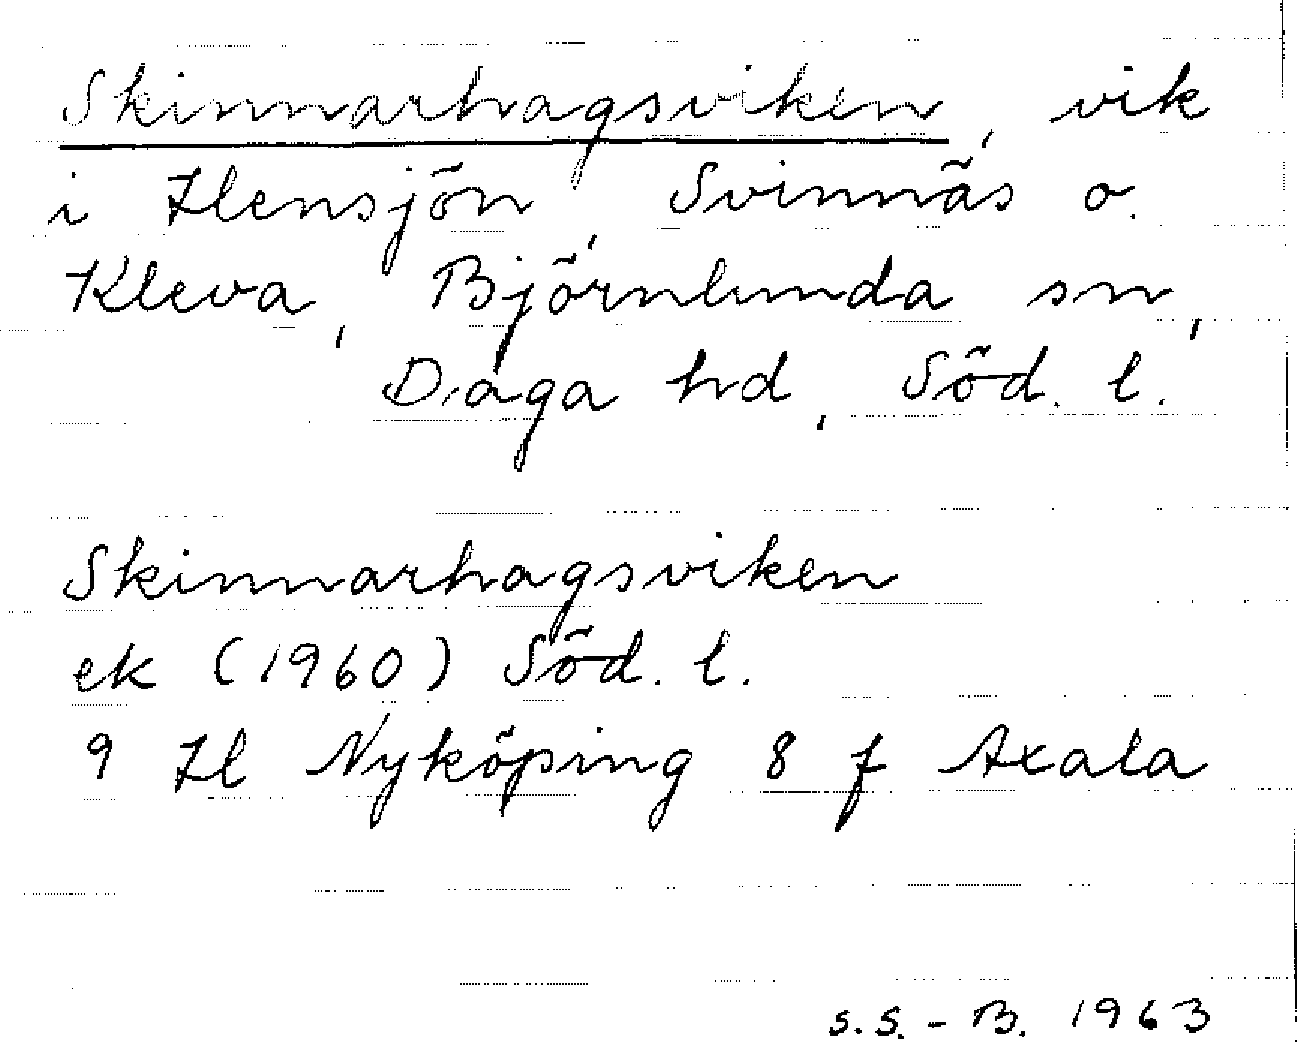 Skinnarhagsviken, vik
i Hensjön, Svinnäs o.
Kleva, Björnlunda sn,
Daga hd, Söd. l.
Skinnarhagsviken
ek (1960) Söd. l.
9 H Nyköping 8 f Axala
s.s.-B. 1963